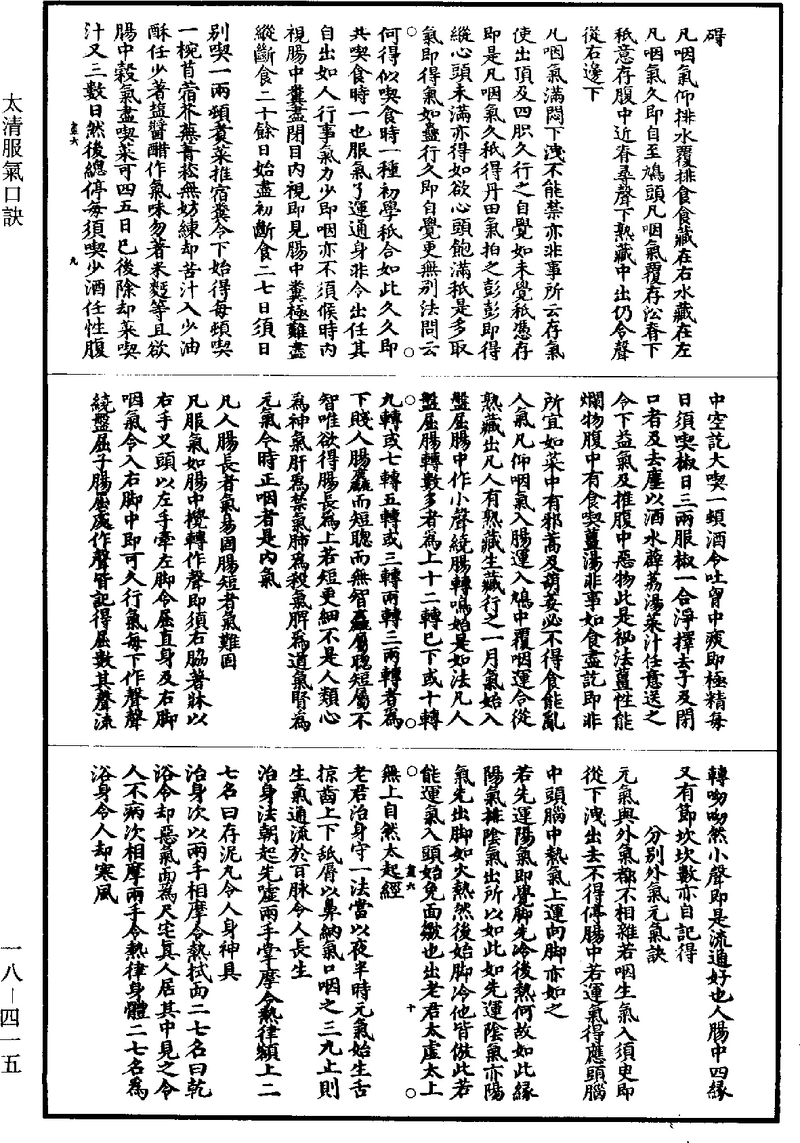 太清服氣口訣
一八—四一五
碍
凡咽氣仰排水覆排食食藏在右水藏在左
凡咽氣久即自至鳩頭凡咽氣覆存訟脊下
秖意存腹中近脊尋聲下熟藏中出仍令聲
從右邊下
凡咽氣滿悶下洩不能禁亦非事所云存氣
使出頂及四肢久行之自覺如未覺秖憑存
即是凡咽氣久秖得丹田氣拍之彭彭即得
縱心頭未滿亦得如欲心頭飽滿秖是多取
氣即得氣如蠱行久即自覺更無別法問云
何得似喫食時一種初學秖合如此久久即
共喫食時一也服氣了運通身非令出任其
自出如人行事氣力少即咽亦不須候時內
視腸中糞盡閉目內視即見腸中糞極難盡
縱斷食二十餘日始盡初斷食二七日須日
別喫一兩頓煮菜推宿糞令下始得每頓喫
一椀苜蓿芥蕪菁菘無妨練却苦汁入少油
酥任少著鹽醬醋作氣味勿著米麵等且欲
腸中穀氣盡喫菜可四五日已後除却菜喫
汁又三數日然後總停每須喫少酒任性腹
盡六
九
中空訖大喫一頓酒令吐胷中痰即極精每
日須喫椒日三兩服椒一合淨擇去子及閉
口者及去塵以酒水薜荔湯菜汁任意送之
令下益氣及推腹中惡物此是祕法薑性能
爛物腹中有食喫薑湯非事如食盡訖即非
所宜如菜中有邪蒿及葫荽必不得食能亂
人氣凡仰咽氣入腸運入鳩中覆咽運合從
熟藏出凡人有熟藏生藏行之一月氣始入
盤屈腸中作小聲繞腸轉鳴始是如法凡人
盤屈腸轉數多者為上十二轉已下或十轉
九轉或七轉五轉或三轉兩轉三兩轉者為
下賤人腸麤而短聰而無智麤屬聰短屬不
智唯欲得腸長為上若短更細不是人類心
為神氣肝為禁氣肺為殺氣脾為道氣腎為
元氣令時正咽者是內氣
凡人腸長者氣易固腸短者氣難固
凡服氣如腸中攪轉作聲即須右脇著牀以
右手叉頭以左手牽左脚令屈直身及右脚
咽氣令入右脚中即可久行氣每下作聲聲
繞盤屈子腸屈處作聲皆記得屈數其聲流
轉呦呦然小聲即是流通好也人腸中四緣
又有節坎坎數亦自記得
分別外氣元氣訣
元氣與外氣都不相雜若咽生氣入須臾即
從下洩出去不得停腸中若運氣得應頭腦
中頭腦中熱氣上運向脚亦如之
若先運陽氣即覺脚先冷後熱何故如此緣
陽氣排陰氣出所以如此如先運陰氣亦陽
氣先出脚如火熱然後始脚冷他皆倣此若
能運氣入頭始免面皺也出老君太虛太上
無上自然太起經
盡六
十
老君治身守一法當以夜半時元氣始生舌
掠齒上下舐脣以鼻納氣口咽之三九止則
生氣通流於百脉令人長生
治身法朝起先噓兩手掌摩令熱律額上二
七名曰存泥丸令人身神具
治身次以兩手相摩令熱拭面二七名曰乾
浴令却惡氣面為尺宅真人居其中見之令
人不病次相摩兩手令熱律身體二七名為
浴身令人却寒風